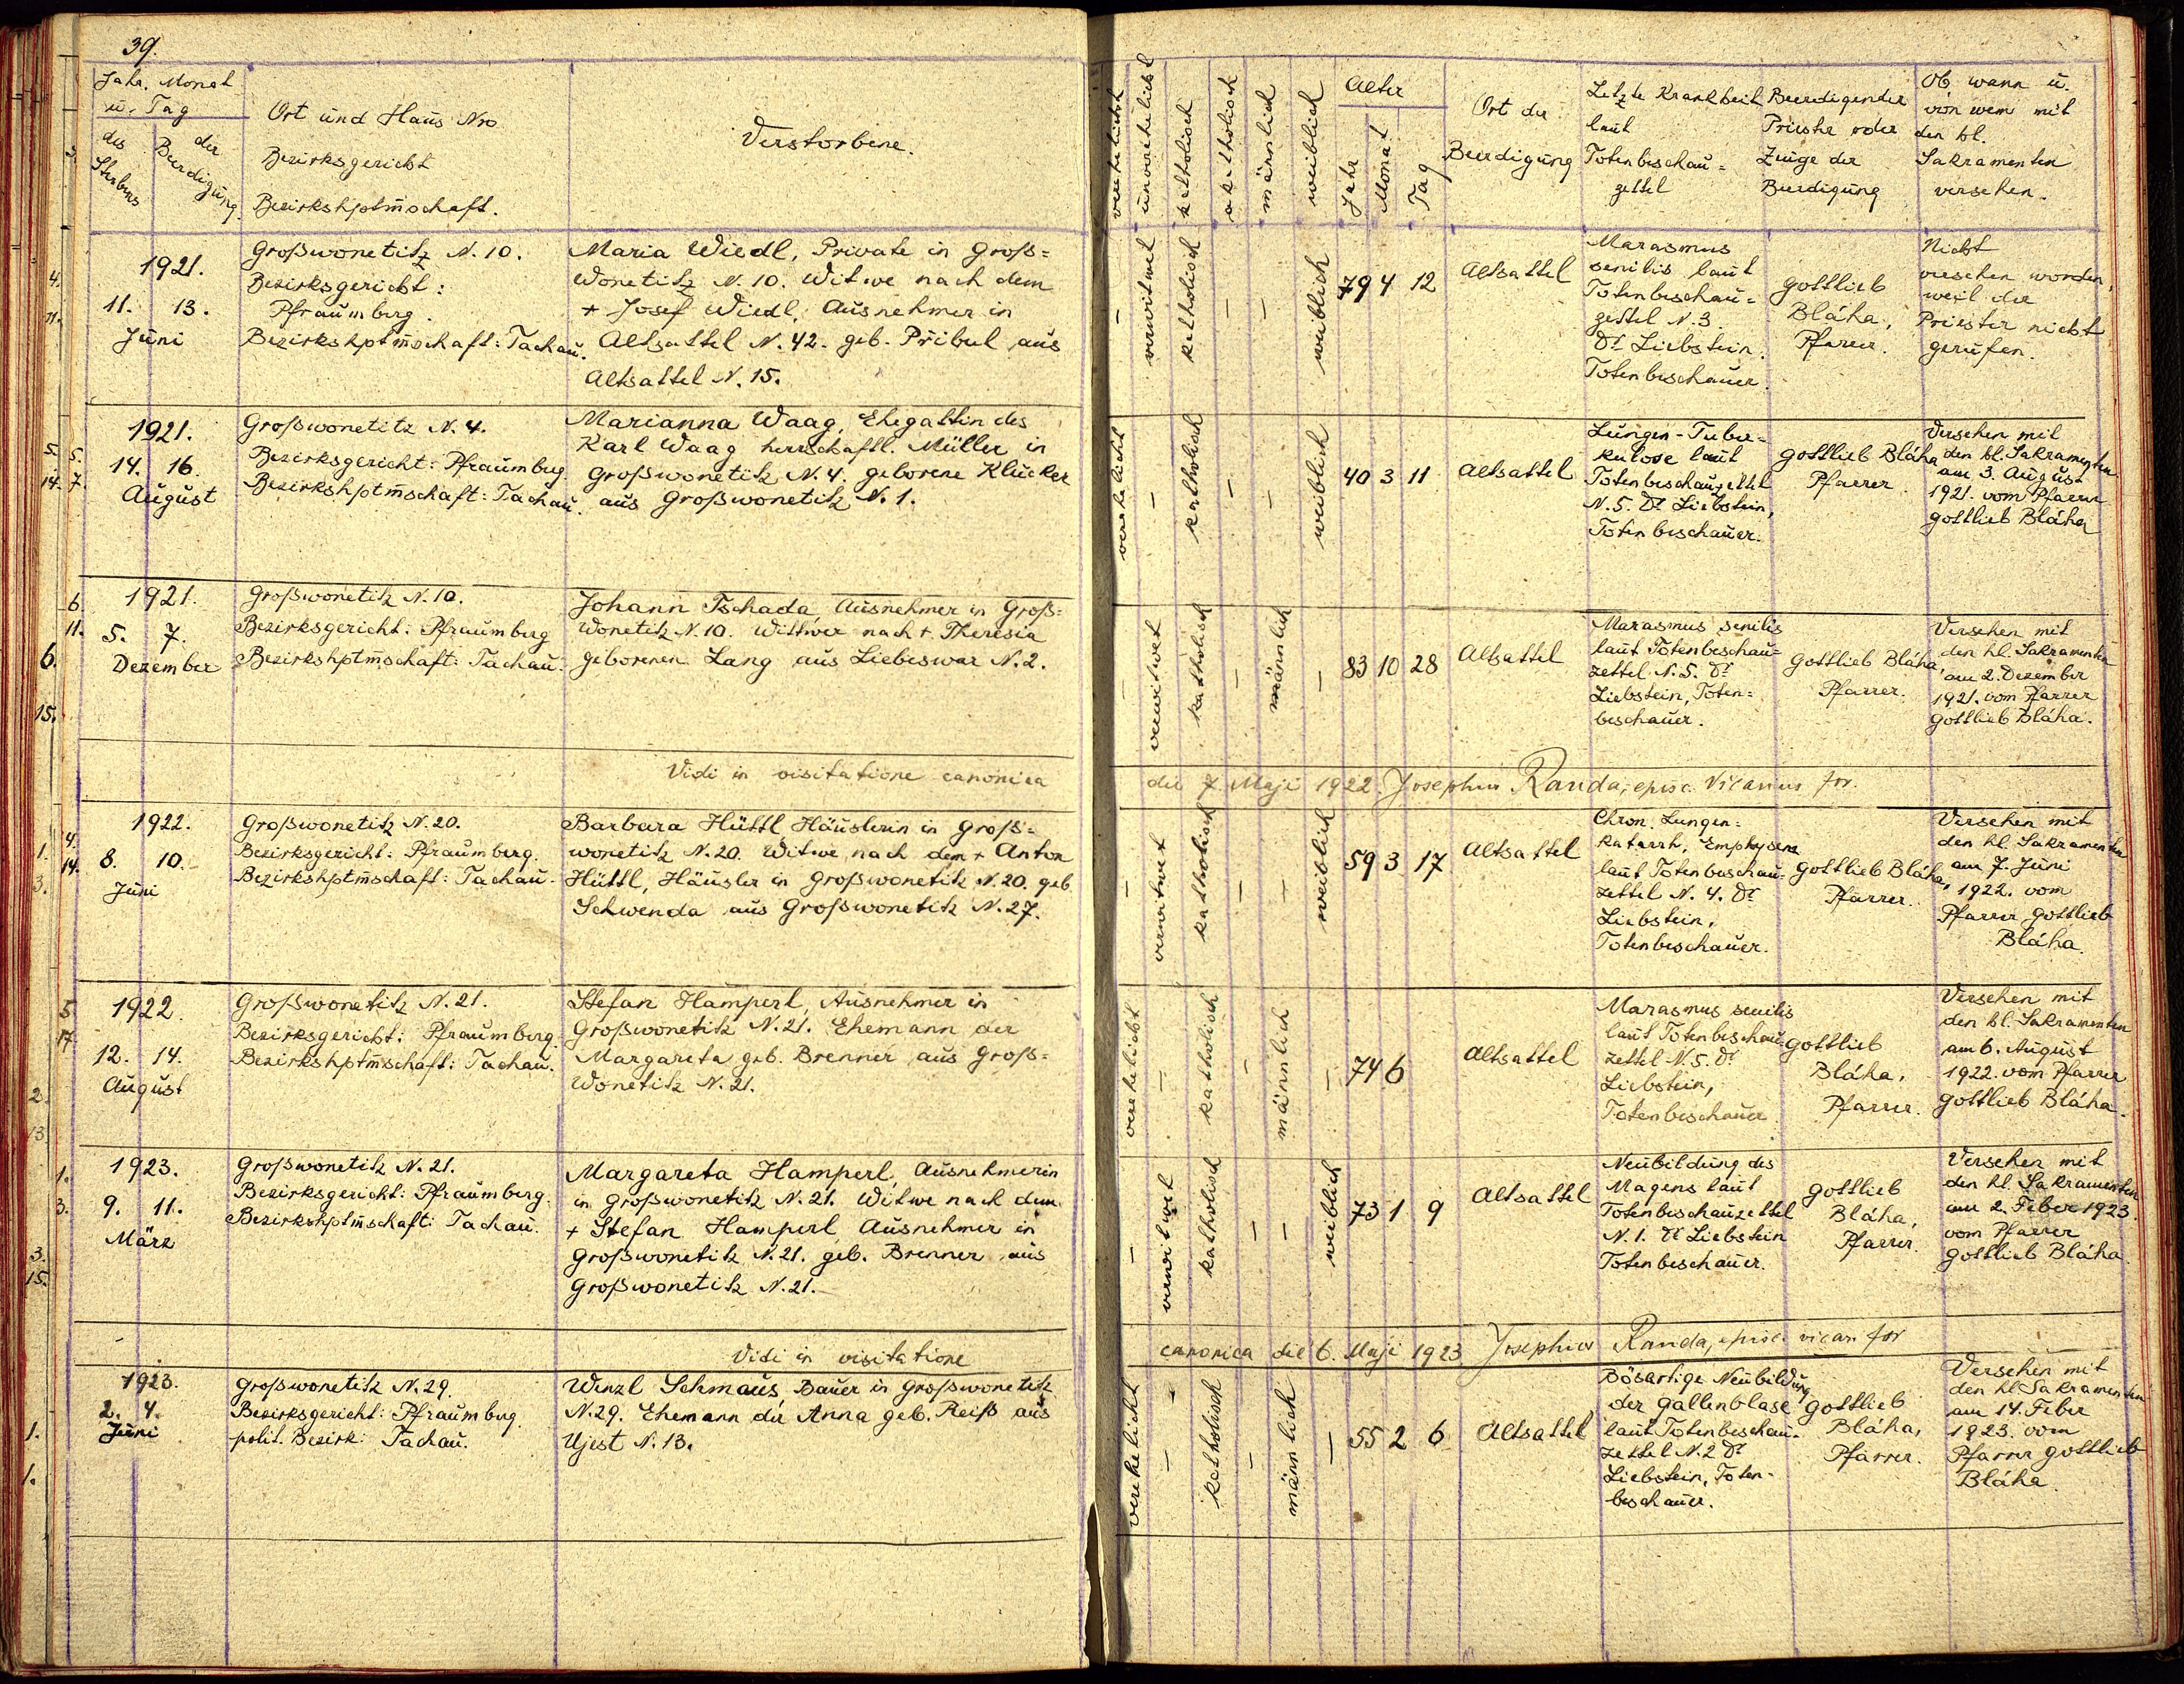 39.
Jahr, Monat
u. Tag
des Sterbens
der Beerdigung
Ort und Haus Nro
Bezirksgericht
Bezirkshptm̄schaft.
Verstorbene.
verehelicht
unverehelicht
katholisch
akatholisch
männlich
weiblich
Alter
Jahr
Monat
Tag
Ort der
Beerdigung
Letzte Krankheit
laut
Totenbeschau=
zettel
Beerdigender
Priester oder
Zeuge der
Beerdigung
Ob, wann u.
von wem mit
den hl.
Sakramenten
versehen.
1921.
11. 13.
Juni
Großwonetitz N. 10.
Bezirksgericht:
Pfraumberg.
Bezirkshptm̄schaft: Tachau.
Maria Wiedl, Private in Groß=
Wonetitz N. 10. Witwe nach dem
+ Josef Wiedl, Ausnehmer in
Altsattel N. 42. geb. Přibul aus
Altsattel N. 15.
— verwitwet katholisch — — weiblich
79 4 12
Altsattel
Marasmus
senilis laut
Totenbeschau=
zettel N. 3.
Dr. Liebstein.
Totenbeschauer.
Gottlieb
Bláha,
Pfarrer.
Nicht
versehen worden,
weil der
Priester nicht
gerufen.
1921.
14. 16.
August
Großwonetitz N. 4.
Bezirksgericht: Pfraumberg.
Bezirkshptm̄schaft: Tachau.
Marianna Waag, Ehegattin des
Karl Waag herrschaftl. Müller in
Großwonetitz N. 4. geborene Klücker
aus Großwonetitz N. 1.
verehelicht — katholisch — — weiblich
40 3 11
Altsattel
Lungen-Tuber=
kulose laut
Totenbeschauzettel
N. 5. Dr. Liebstein,
Totenbeschauer.
Gottlieb Bláha
Pfarrer.
Versehen mit
den hl. Sakramenten
am 3. August
1921. vom Pfarrer
Gottlieb Bláha
1921.
5. 7.
Dezember
Großwonetitz N. 10.
Bezirksgericht: Pfraumberg
Bezirkshptm̄schaft: Tachau.
Johann Tschada, Ausnehmer in Groß=
Wonetitz N. 10. Wittwer nach + Theresia
geborenen Lang aus Liebeswar N. 2.
— verwitwet katholisch — männlich —
83 10 28
Altsattel
Marasmus senilis
laut Totenbeschau=
zettel N. 5. Dr.
Liebstein, Toten=
beschauer.
Gottlieb Bláha,
Pfarrer.
Versehen mit
den hl. Sakramenten
am 2. Dezember
1921. vom Pfarrer
Gottlieb Bláha.
Vidi in visitatione canonica
die 7. Maji 1922. Josephus Randa, episc. Vicarius for.
1922.
8. 10.
Juni
Großwonetitz N. 20.
Bezirksgericht: Pfraumberg.
Bezirkshptm̄schaft: Tachau.
Barbara Hüttl Häuslerin in Groß=
wonetitz N. 20. Witwe nach dem + Anton
Hüttl, Häusler in Großwonetitz N. 20. geb.
Schwenda aus Großwonetitz N. 27.
— verwitwet katholisch — — weiblich
59 3 17
Altsattel
Chron. Lungen=
katarrh, Emphysem
laut Totenbeschau=
zettel N. 4. Dr.
Liebstein,
Totenbeschauer.
Gottlieb Bláha,
Pfarrer.
Versehen mit
den hl. Sakramenten
am 7. Juni
1922. vom
Pfarrer Gottlieb
Bláha.
1922.
12. 14.
August
Großwonetitz N. 21.
Bezirksgericht: Pfraumberg.
Bezirkshptm̄schaft: Tachau.
Stefan Hamperl, Ausnehmer in
Großwonetitz N. 21. Ehemann der
Margareta geb. Brenner aus Groß=
Wonetitz N. 21.
verehelicht — katholisch — männlich —
74 6
Altsattel
Marasmus senilis
laut Totenbeschau=
zettel N. 5. Dr.
Liebstein,
Totenbeschauer
Gottlieb
Bláha,
Pfarrer.
Versehen mit
den hl. Sakramenten
am 6. August
1922. vom Pfarrer
Gottlieb Bláha.
1923.
9. 11.
März
Großwonetitz N. 21.
Bezirksgericht: Pfraumberg.
Bezirkshptm̄schaft: Tachau.
Margareta Hamperl, Ausnehmerin
in Großwonetitz N. 21. Witwe nach dem
+ Stefan Hamperl, Ausnehmer in
Großwonetitz N. 21. geb. Brenner aus
Großwonetitz N. 21.
— verwitwet katholisch — — weiblich
73 1 9
Altsattel
Neubildung des
Magens laut
Totenbeschauzettel
N. 1. Dr. Liebstein
Totenbeschauer.
Gottlieb
Bláha,
Pfarrer.
Versehen mit
den hl. Sakramenten
am 2. Feber 1923.
vom Pfarrer
Gottlieb Bláha
Vidi in visitatione
canonica die 6. Maji 1923 Josephus Randa, episc. vicari for
1923.
2. 4.
Juni
Großwonetitz N. 29.
Bezirksgericht: Pfraumberg.
polit. Bezirk: Tachau.
Wenzl Schmaus, Bauer in Großwonetitz
N. 29. Ehemann der Anna geb. Reiß aus
Ujest N. 13.
verehelicht — katholisch — männlich —
55 2 6
Altsattel
Bösartige Neubildung
der Gallenblase
laut Totenbeschau=
zettel N. 2 Dr.
Liebstein, Toten=
beschauer.
Gottlieb
Bláha,
Pfarrer.
Versehen mit
den hl. Sakramenten
am 14. Feber
1923. vom
Pfarrer Gottlieb
Bláha.